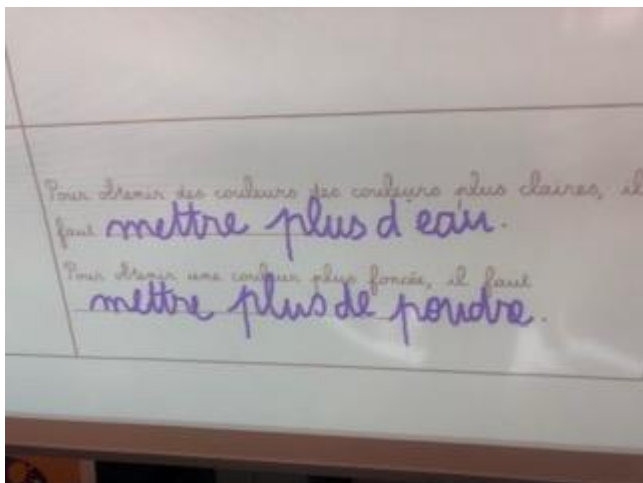 Pour obtenir des couleurs des couleurs plus claires, il
faut mettre plus d'eau.
Pour obtenir une couleur plus foncée, il faut
mettre plus de poudre.